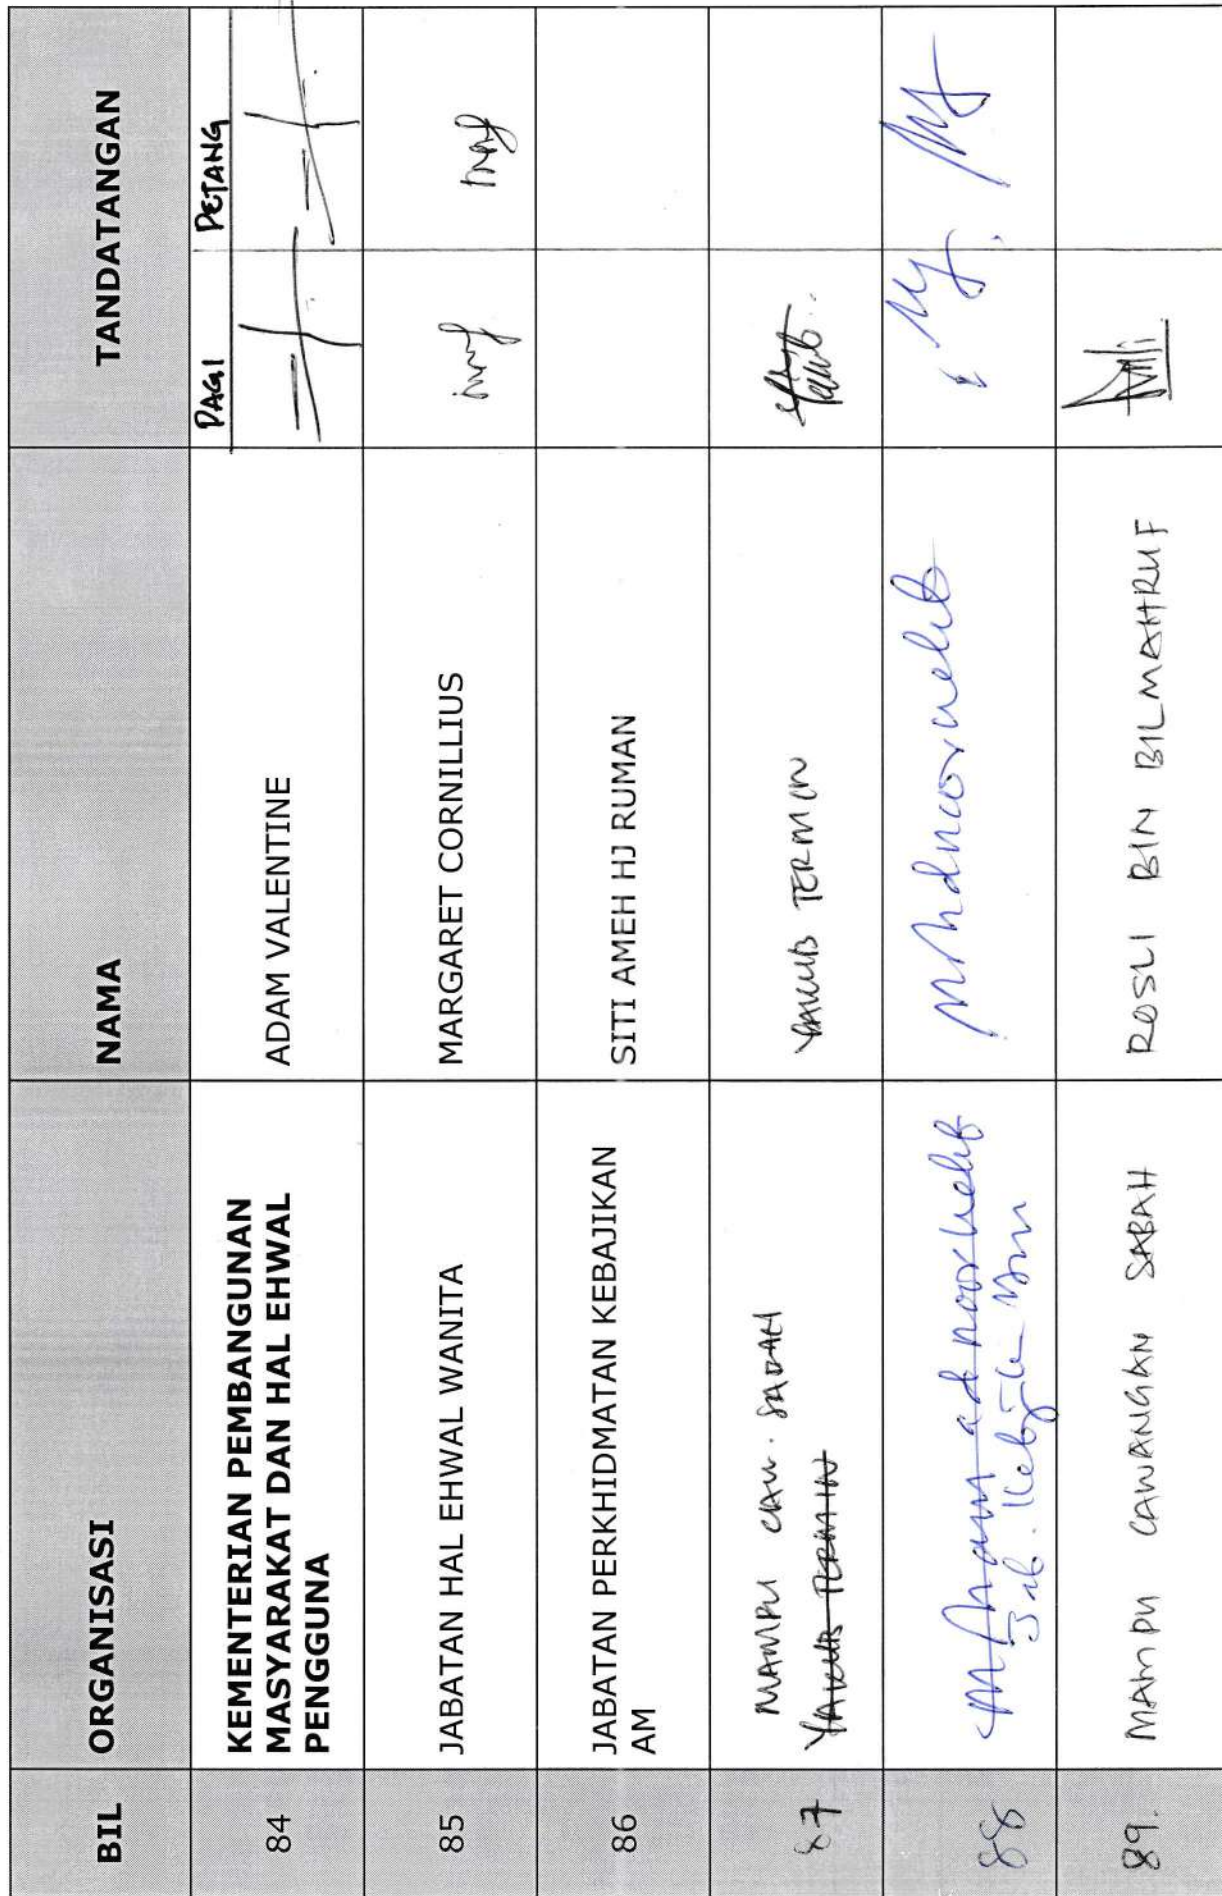 BIL ORGANISASI NAMA TANDATANGAN
PAGI PETANG
84 KEMENTERIAN PEMBANGUNAN ADAM VALENTINE
MASYARAKAT DAN HAL EHWAL
PENGGUNA
85 JABATAN HAL EHWAL WANITA MARGARET CORNILLIUS
86 JABATAN PERKHIDMATAN KEBAJIKAN SITI AMEH HJ RUMAN
AM
87 MAMPU CAW. SABAH YAKUB TERMIN
YAKUB TERMIN
88
Jab.
89. MAMPU CAWANGAN SABAH ROSLI BIN BILMAHRUF